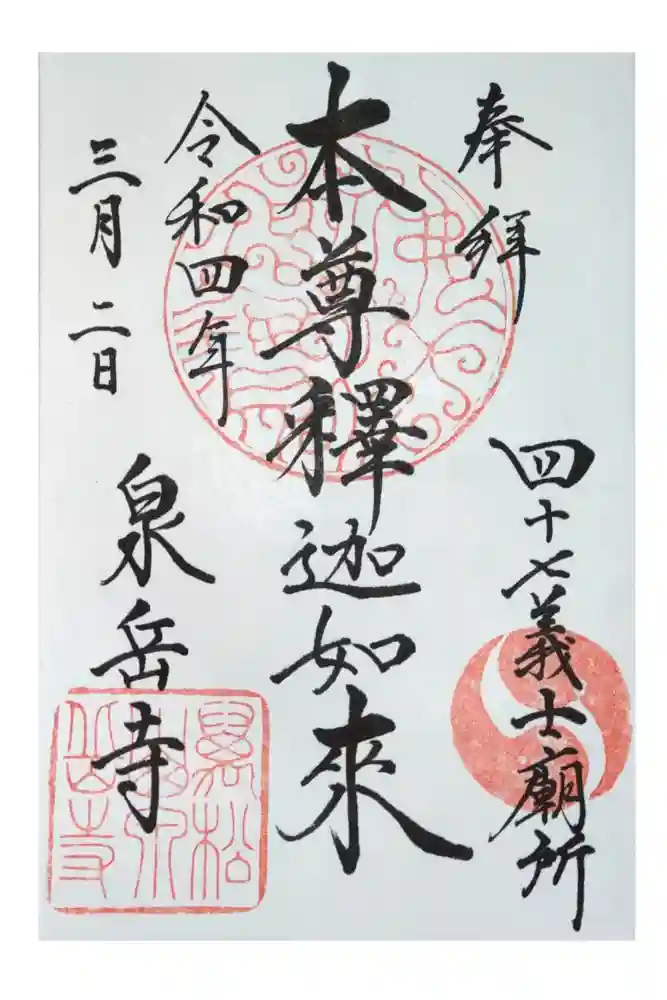 奉拜
四十七義士廟所
本尊釋迦如來
令和四年
三月二日
泉岳寺